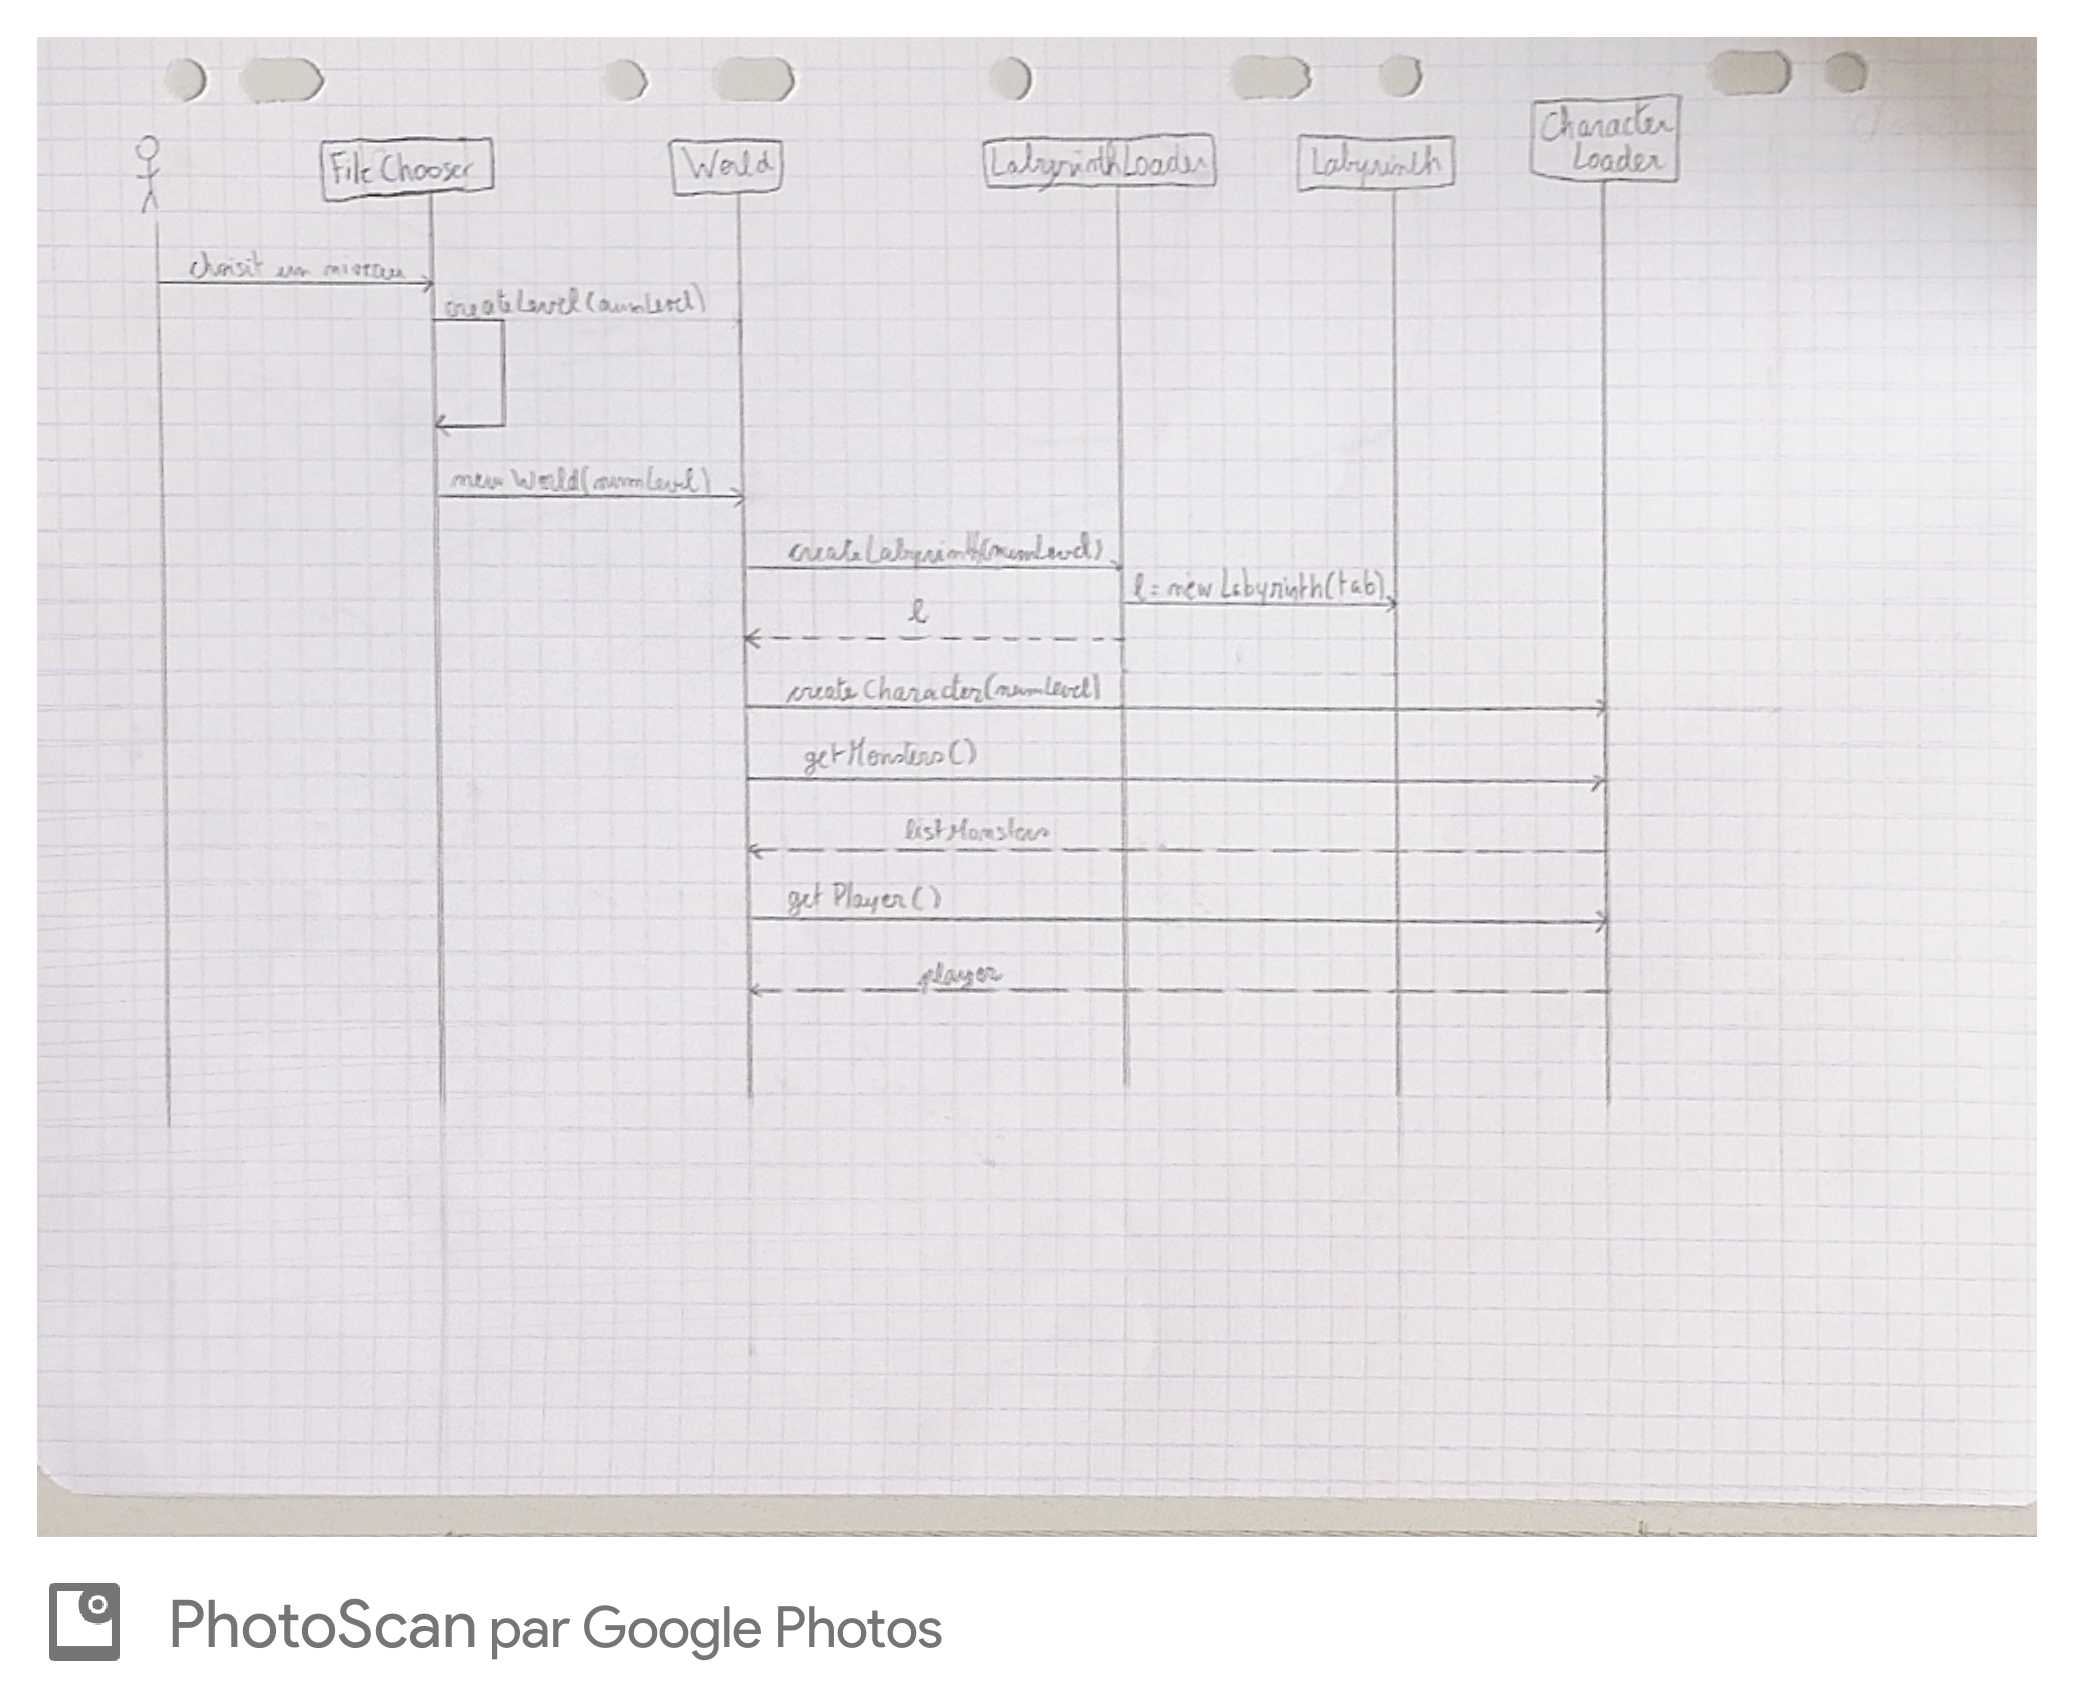 FileChooser
World
LabyrinthLoader
Labyrinth
Character
Loader
choisit un niveau
createLevel(numLevel)
new World(numLevel)
createLabyrinth(numLevel)
l = new Labyrinth(tab)
l
createCharacter(numLevel)
getMonsters()
listMonsters
getPlayer()
player
PhotoScan par Google Photos